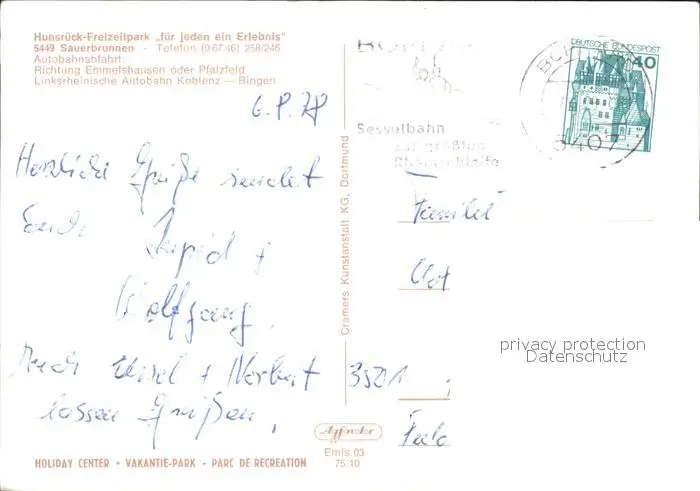 Hunsrück-Freizeitpark „für jeden ein Erlebnis"
5449 Sauerbrunnen - Telefon (0 67 46) 258/246
Autobahnabfahrt:
Richtung Emmelshausen oder Pfalzfeld
Linksrheinische Autobahn Koblenz — Bingen
Herzliche Grüße sendet
Euch
Wolfgang
Auch Ursel + Norbert
lassen Grüßen,
HOLIDAY CENTER • VAKANTIE-PARK • PARC DE RECREATION
Cramers Kunstanstalt KG, Dortmund
Sesselbahn
zur größten
Rheinschleife
DEUTSCHE BUNDESPOST
40
5407
Familie
privacy protection
Datenschutz
3501
Agfacolor
Emls 03
75 10